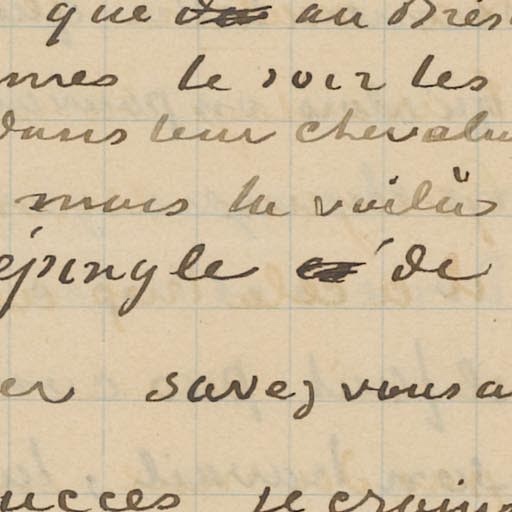 que au Brés
mes le soir les
dans leur chevelu
mais la voilà
épingle de
er savez vous a
uccès je crains